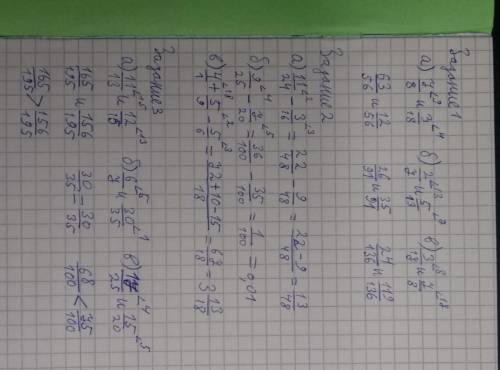 Задание 1
а) и б) 2/7 и 5/13 в) 3/17 и 7/8
63/56 и 12/56 26/91 и 35/91 24/136 и 119/136
Задание 2
а) 11/24 - 3/16 = 22/48 - 9/48 = 22-9/48 = 13/48
б) 9/25 - 7/20 = 36/100 - 35/100 = 1/100 = 0,01
в) 4/1 + 5/9 - 5/6 = 72+10-15/18 = = 3 13/18
Задание 3
а) 11/13 и б) 6/7 и 30/35 в) 17/25 и 15/20
165/195 и 156/195 30/35 = 30/35 68/100 < 75/100
165/195 > 156/195